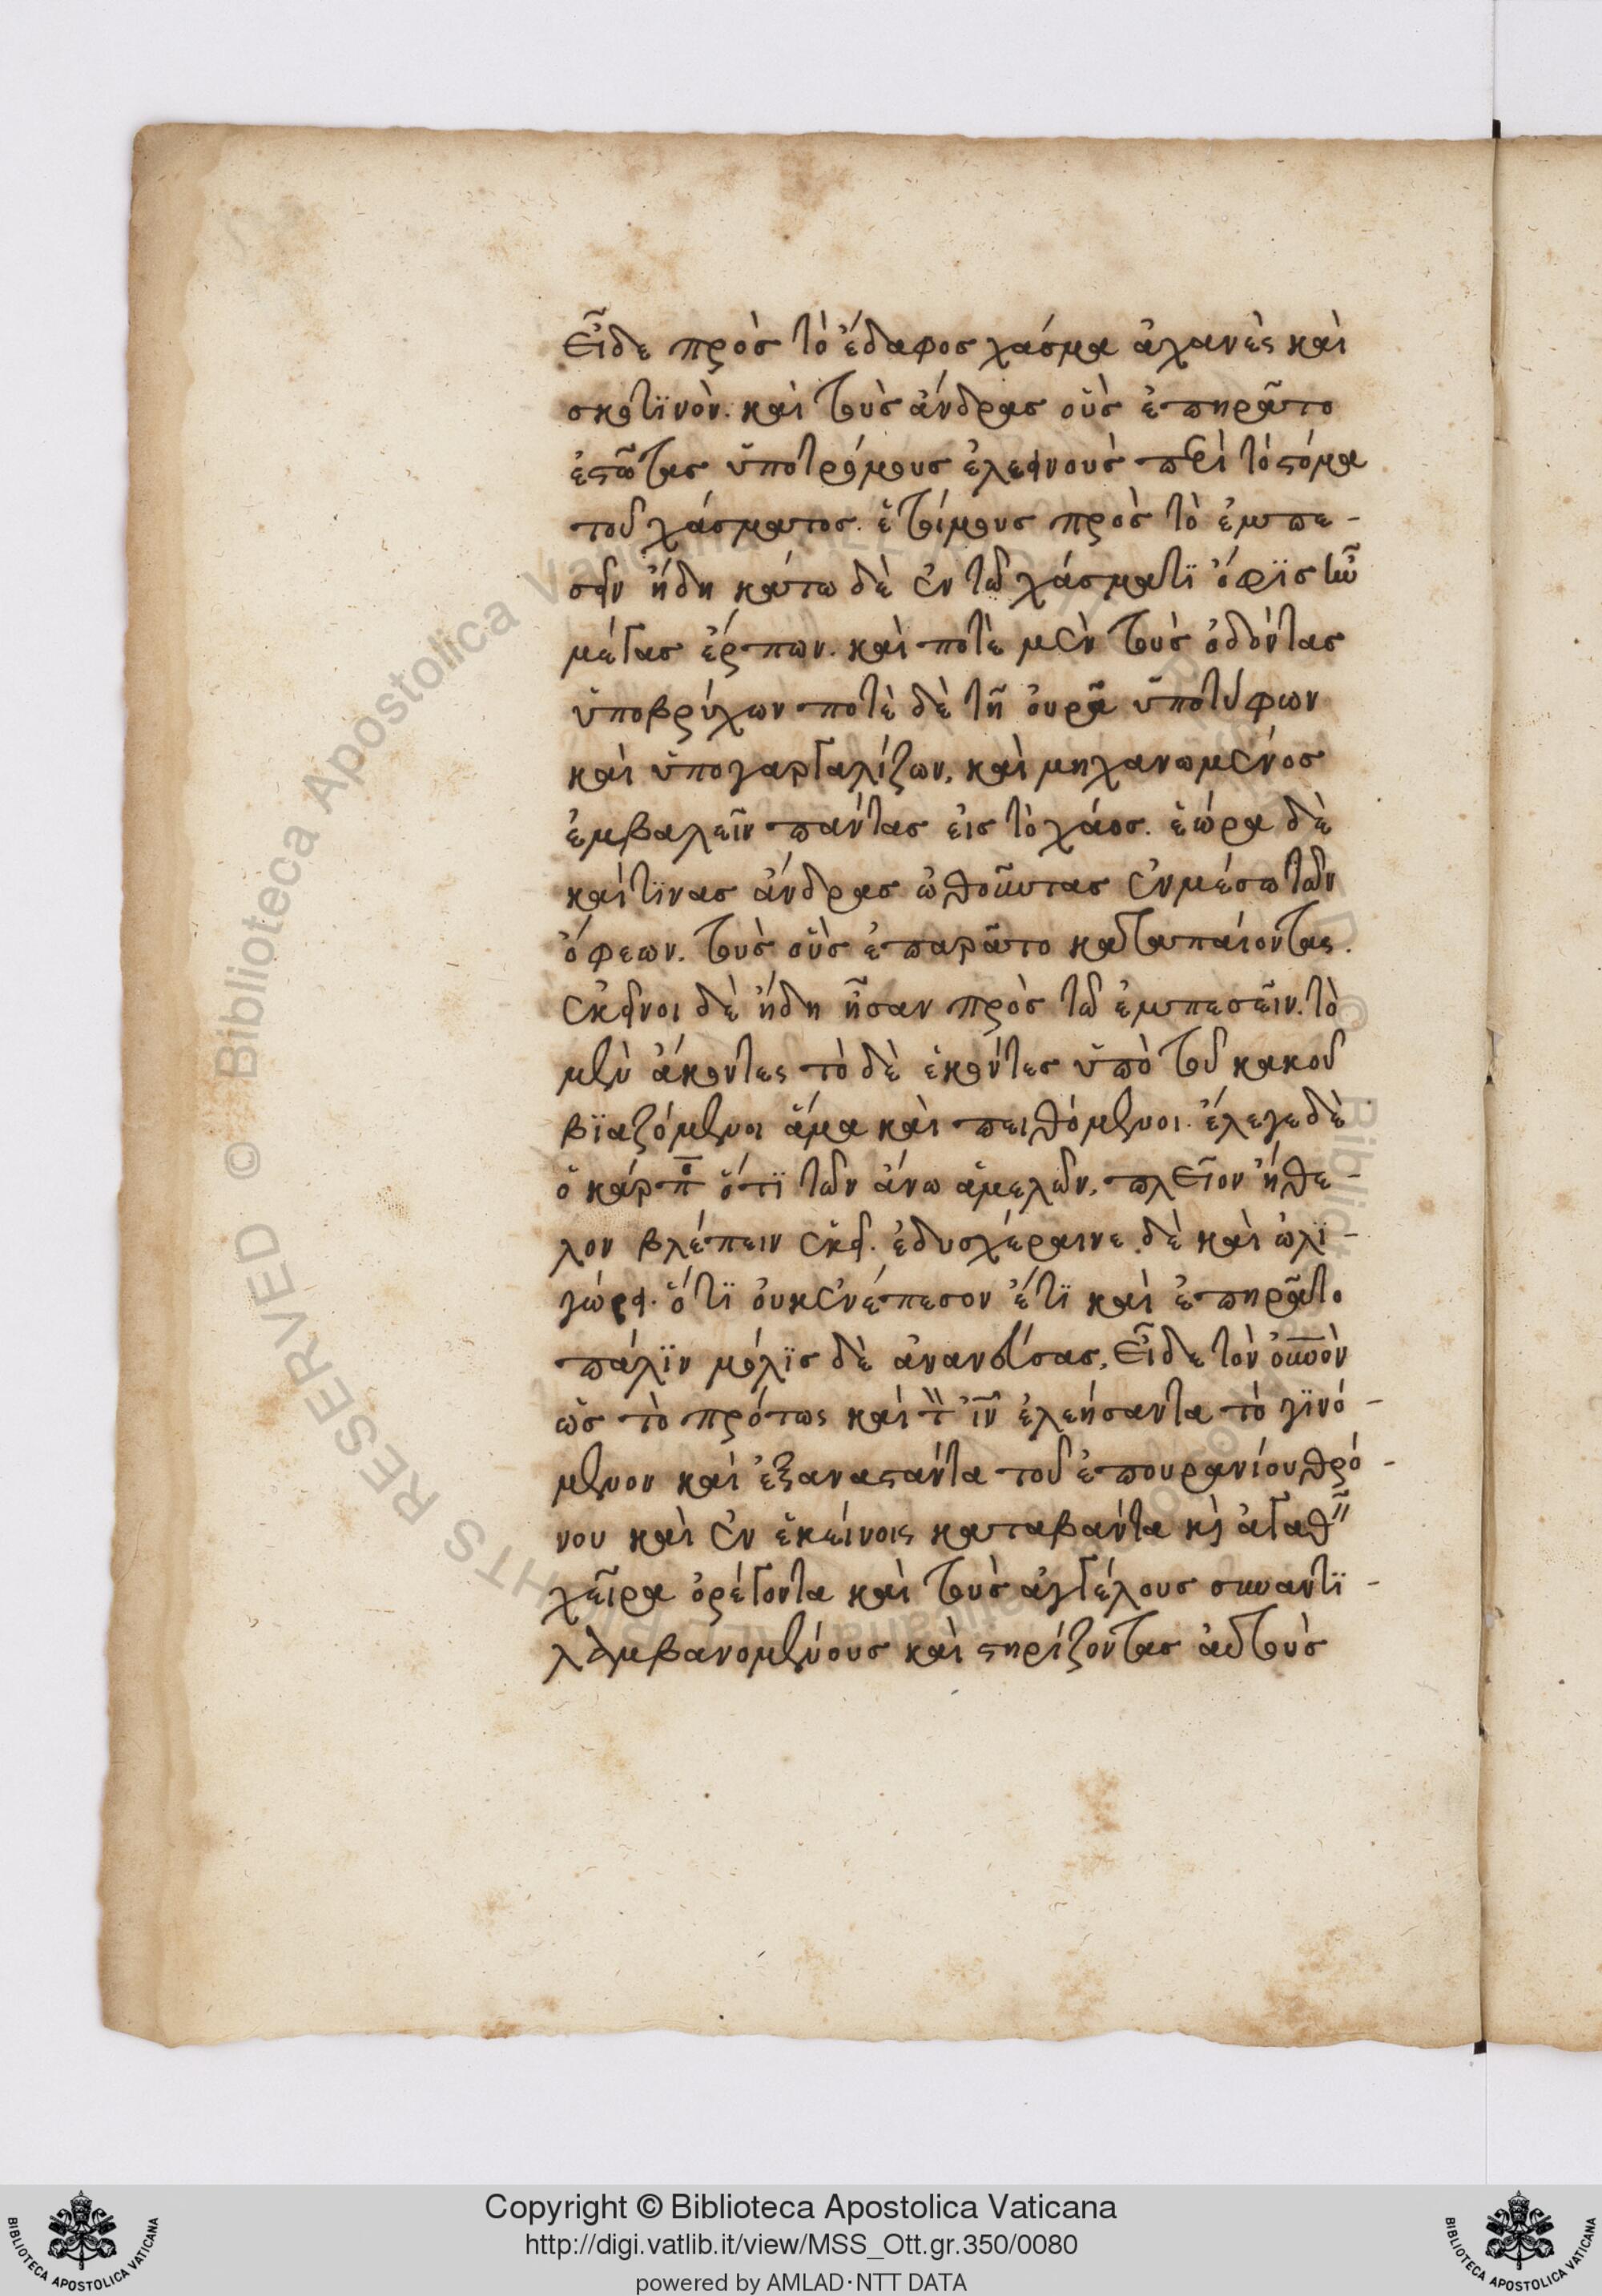 εἶδε πρὸσ τὸ ἔδαφοσ χάσμα ἀχανὲς καὶ
σκοτϊνὸν. καὶ τοὺσ ἄνδρασ οὓσ ἐπηρᾶτο
ἐστῶτασ ὑποτρόμουσ ἐλεεινοὺσ περὶ τὸ στόμα
τοῦ χάσματοσ. ἑτοίμουσ πρὸσ τὸ ἐμπε-
σεῖν ἤδη κάτω δὲ ἐν τῶ χάσματϊ ὄφϊσ ἦν
μέγασ ἕρπων. καὶ ποτὲ μὲν τοὺσ ὀδόντασ
ὑποβρύχων ποτὲ δὲ τῆ ὀυρᾶ ὑποτύφων
καὶ ὑπογαργαλίζων, καὶ μηχανωμένοσ
ἐμβαλεῖν πάντασ ἐισ τὸ χάοσ. ἑώρα δὲ
καί τϊνασ ἄνδρασ ὠθοῦντασ ἐν μέσω τῶν
ὄφεων. τοὺσ οὓσ ἐπαρᾶτο καταπαίοντας.
ἐκεῖνοι δὲ ἤδη ἦσαν πρὸσ τῶ ἐμπεσεῖν. τὸ
μὲν ἄκοντες τὸ δὲ ἑκόντεσ ὑπὸ τοῦ κακοῦ
βϊαζόμενοι ἅμα καὶ πειθόμενοι. ἔλεγε δὲ
ὁ κάρπ̅ο̅ ὅτϊ τῶν ἄνω ἀμελῶν, πλεῖον ἤθε-
λον βλέπειν ἐκεῖ. ἐδυσχέραινε δὲ καὶ ὠλϊ-
γώρει. ὅτϊ ὀυκ ἐνέπεσον ἔτϊ καὶ ἐπηρᾶτο
πάλϊν μόλϊσ δὲ ἀνανεύσασ, εἶδε τὸν ὀυ̅ν̅ὸν
ὡσ τὸ πρότως καὶ τ̀ ἰ̅ν̅ ἐλεήσαντα τὸ γϊνό-
μενον καὶ ἐξαναστάντα τοῦ ἐπουρανίου θρό-
νου καὶ ἐν ἐκείνοις καταβάντα κὶ ἀγαθ
χεῖρα ὀρέγοντα καὶ τοὺσ ἀγγέλουσ συναντϊ-
λαμβανομένουσ καὶ στηρίζοντασ ἀυτοὺσ
Copyright © Biblioteca Apostolica Vaticana
http://digi.vatlib.it/view/MSS_Ott.gr.350/0080
powered by AMLAD·NTT DATA